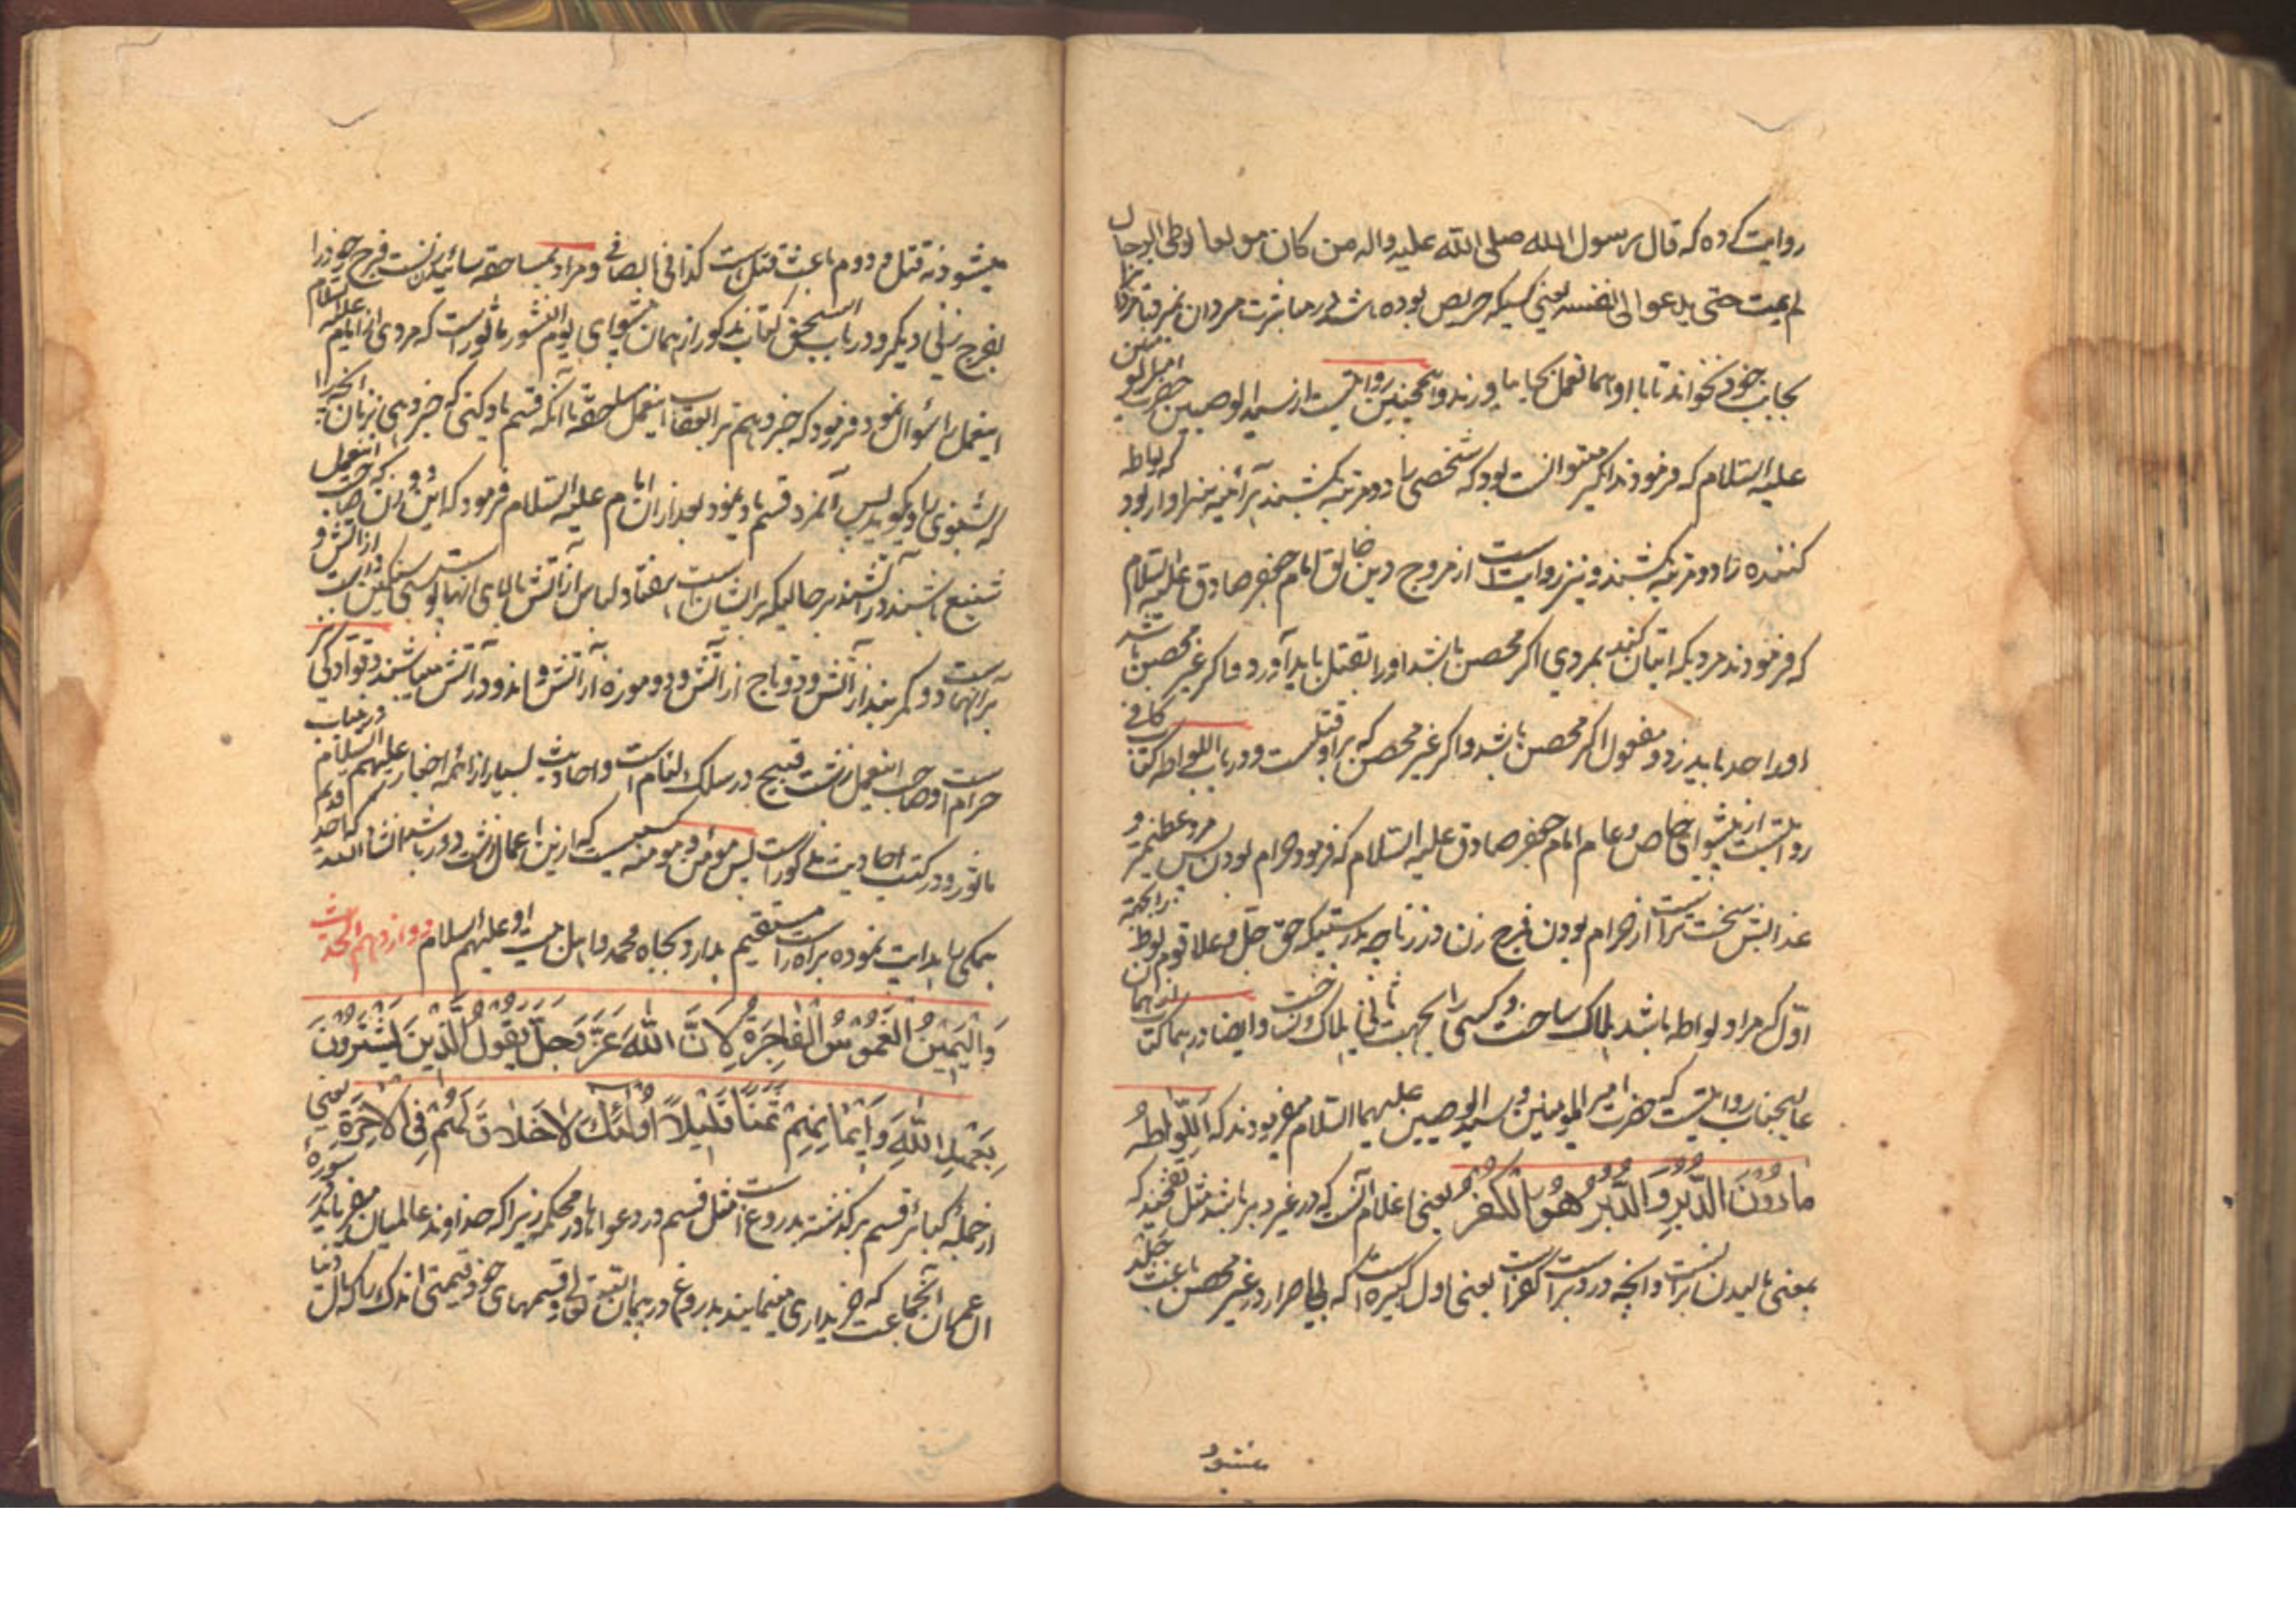 روایت کرده که قال رسول الله صلی الله علیه واله من کان مولعا لوطی الرجال
لم یمت حتی یدعوا الی نفسه یعنی کسیکه حریص بوده باشد در مباشرت مردان نمیرد تا مردانرا
بجانب خود نخواند تا با او همان عمل بجا بیاورند و همچنین روایتست از سید الوصیین حضرت امیرالمؤمنین
علیه السلام که فرمودند اگر میتوانست بود که شخصی را دو مرتبه بکشند هر آئینه سزاوار بود که لواطه
کننده را دو مرتبه بکشند و نیز روایت است از مروج دین خالق امام جعفر صادق علیه السلام
که فرمودند مردیکه اتیان کند بمردی اگر محصن باشد اورا بقتل باید آورد و اگر غیر محصن باشد
اورا حد باید زد و مفعول اگر محصن باشد و اگر غیر محصن که بر او قتلست و در باب اللواطه کتاب کافی
روایتست از پیشوای خاص و عام امام جعفر صادق علیه السلام که فرمود حرام بودن پس مرد عظیمتر و
عذابش سخت تر است از حرام بودن فرج زن در زنا چه بدرستیکه حق جل و علا قوم لوط را بجهة
اول که مراد لواطه باشد هلاک ساخت و کسی را بجهت ثانی هلاک نساخت و ایضا در همان کتاب از همان
عالیجناب روایتست که حضرت امیر المومنین و سید الوصیین علیهما السلام میفرمودند که اللواطه
ما دون الدبر و الدبر هو الکفر یعنی اغلام آنست که در غیر دبر باشد مثل تفخیذ که
بمعنی مالیدن رانست و آنچه در دبر است کفر است یعنی اول کبیره است که لیاطه را در غیر محصن باعث جلد
میشود
میشود نه قتل و دوم باعث قتل است کذا فی الصافی و مراد بمساحقه سائیدن زنست فرج خود را
بفرج زنی دیگر و در باب السحق کتاب مذکور از همان پیشوای یوم النشور ماثور است که مردی از امام علیه السلام
اینعمل را سؤال نمود فرمود که خبر دهم ترا بعقاب اینعمل مساحقه تا آنکه قسم یاد کنی که خبر دهی زنان آنچه را
که شنوی یاد گوید پس آنمرد قسم یاد نمود بعد از آن امام علیه السلام فرمود که این دو زن که صاحب اینعمل
شنیع باشند در آتشند در حالیکه بر ایشان است هفتاد لباس از آتش بالای آنها پوستی سنگین است از آتش و
بر آنهاست دو کمربند از آتش و دو تاج از آتش و دو موزه از آتش و اندو در آتش میباشند و قوادگی نیز
حرامست و صاحب اینعمل زشت قبیح در سلک لئام است و احادیث بسیار از ائمه اخیار علیهم السلام در اینباب
ماثور و در کتب احادیث مذکور است پس مؤمن و مومنه کیست که ازین اعمال زشت دور باشد انشاء الله
همگی را هدایت نموده براه راست مستقیم بدارد بجاه محمد و اهل بیت او علیهم السلام دوازدهم الحدیث
وَالْیَمِیْنُ الْغَمُوْسُ الْفَاجِرَةُ لِاَنَّ اللهَ عَزَّ وَجَلَّ یَقُوْلُ الَّذِیْنَ یَشْتَرُوْنَ
بِعَهْدِ اللهِ وَاَیْمَانِهِمْ ثَمَنًا قَلِیْلًا اُولٰئِکَ لَا خَلَاقَ لَهُمْ فِی الْاٰخِرَةِ یعنی
از جمله کبائر قسم برگذشته بدروغست مثل قسم در دعواها در محکمه زیرا که خداوند عالمیان میفرماید در سوره
آل عمران که انجماعت که خریداری مینمایند بدروغ در پیمان و قسمهای خود قیمتی اندک را که مال دنیا